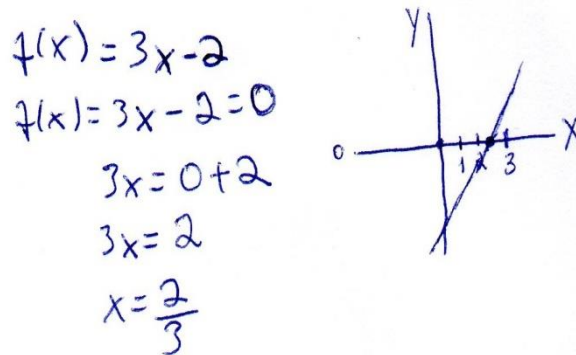 f(x) = 3x - 2
f(x) = 3x - 2 = 0
3x = 0 + 2
3x = 2
x = 2/3
Y
0
1 2 3
X